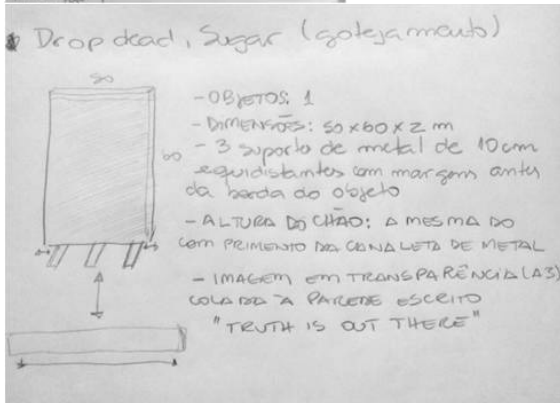 Drop dead, Sugar (gotejamento)
50
60
- OBJETOS: 1
- DIMENSÕES: 50 x 60 x 2 m
- 3 suporte de metal de 10 cm
equidistantes com margem antes
da borda do objeto
- ALTURA DO CHÃO: A MESMA DO
COMPRIMENTO DA CANALETA DE METAL
- IMAGEM EM TRANSPARÊNCIA (A3)
COLADA À PAREDE ESCRITO
"TRUTH IS OUT THERE"